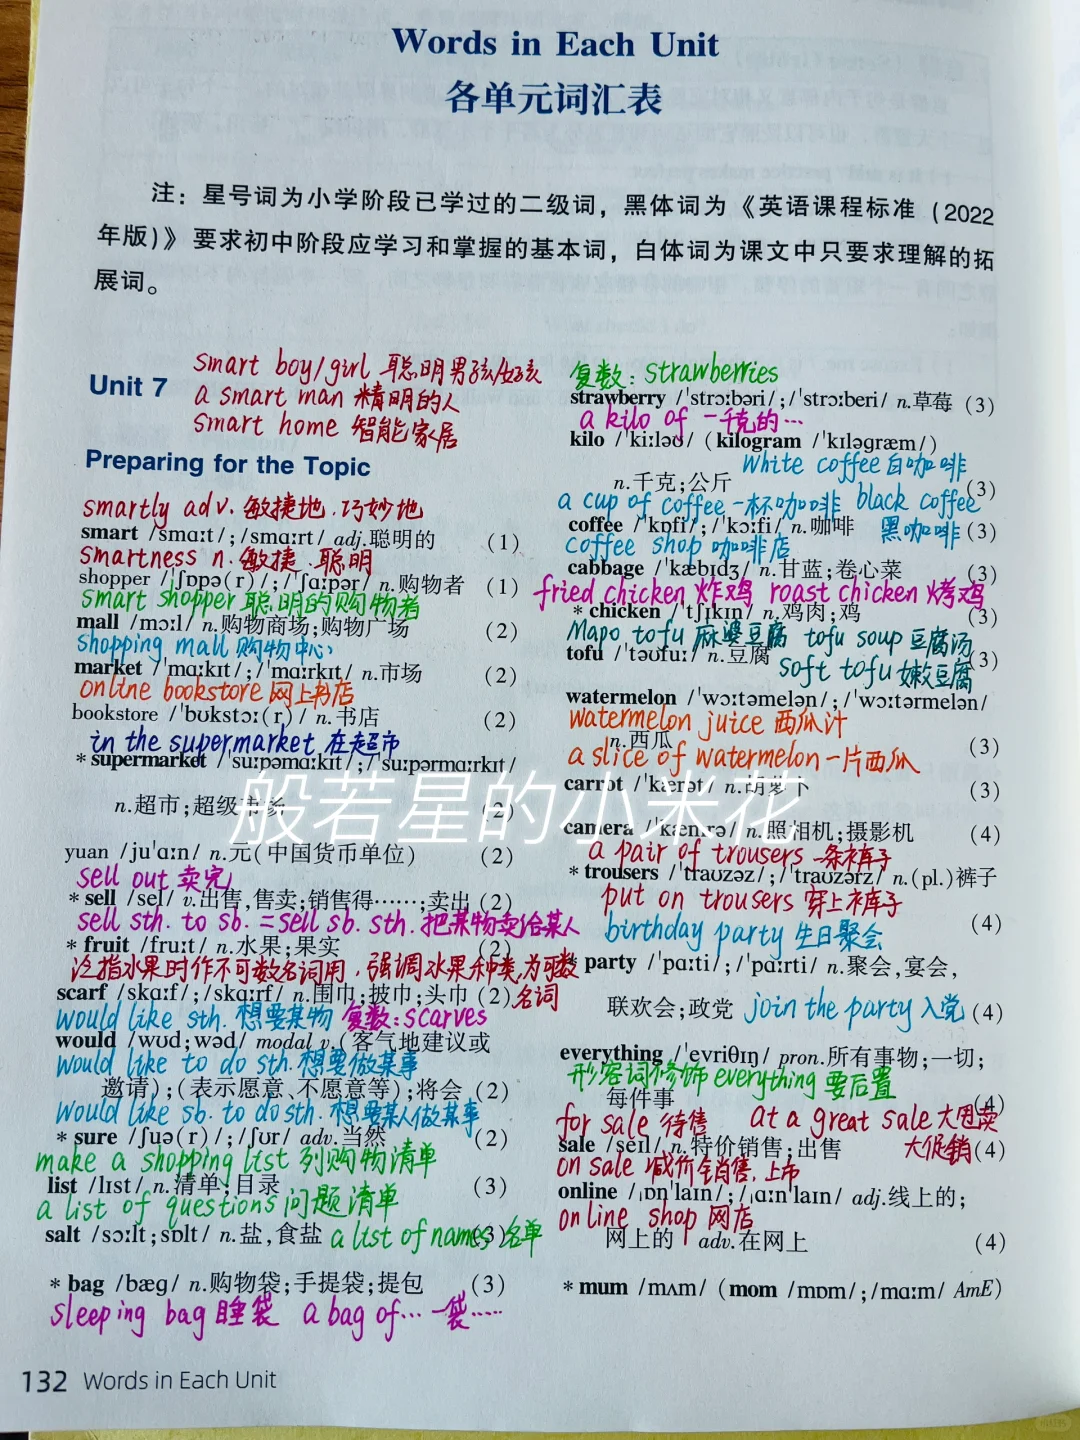 Words in Each Unit
各单元词汇表
注：星号词为小学阶段已学过的二级词，黑体词为《英语课程标准（2022
年版）》要求初中阶段应学习和掌握的基本词，白体词为课文中只要求理解的拓
展词。
smart boy/girl 聪明男孩/女孩
Unit 7
a smart man 精明的人
smart home 智能家居
Preparing for the Topic
smartly adv. 敏捷地.巧妙地
smart /smɑːt/;/smɑːrt/ adj.聪明的 (1)
smartness n. 敏捷.聪明
shopper /ˈʃɒpə(r)/;/ˈʃɑːpər/ n.购物者 (1)
smart shopper 聪明的购物者
mall /mɔːl/ n.购物商场;购物广场 (2)
shopping mall 购物中心
market /ˈmɑːkɪt/;/ˈmɑːrkɪt/ n.市场 (2)
online bookstore 网上书店
bookstore /ˈbʊkstɔː(r)/ n.书店 (2)
in the supermarket 在超市
*supermarket /ˈsuːpəmɑːkɪt/;/ˈsuːpərmɑːrkɪt/
n.超市;超级市场 (2)
yuan /juˈɑːn/ n.元(中国货币单位) (2)
sell out 卖完
*sell /sel/ v.出售,售卖;销售得……;卖出 (2)
sell sth. to sb. =sell sb. sth. 把某物卖给某人
*fruit /fruːt/ n.水果;果实 (2)
泛指水果时作不可数名词用.强调水果种类,为可数
scarf /skɑːf/;/skɑːrf/ n.围巾;披巾;头巾 (2) 名词
would like sth. 想要某物 复数:scarves
would /wʊd;wəd/ modal v.(客气地建议或
would like to do sth. 想要做某事
邀请);(表示愿意、不愿意等);将会 (2)
would like sb. to do sth. 想要某人做某事
*sure /ʃuə(r)/;/ʃʊr/ adv.当然 (2)
make a shopping list 列购物清单
list /lɪst/ n.清单;目录 (3)
a list of questions 问题清单
salt /sɔːlt;sɒlt/ n.盐,食盐 (3)
a list of names 名单
*bag /bæɡ/ n.购物袋;手提袋;提包 (3)
sleeping bag 睡袋 a bag of… 一袋……
复数: strawberries
strawberry /ˈstrɔːbəri/;/ˈstrɔːberi/ n.草莓 (3)
a kilo of 一千克的…
kilo /ˈkiːləʊ/ (kilogram /ˈkɪləɡræm/)
white coffee 白咖啡
n.千克;公斤 (3)
a cup of coffee 一杯咖啡 black coffee
coffee /ˈkɒfi/;/ˈkɔːfi/ n.咖啡 黑咖啡 (3)
coffee shop 咖啡店
cabbage /ˈkæbɪdʒ/ n.甘蓝;卷心菜 (3)
fried chicken 炸鸡 roast chicken 烤鸡
*chicken /ˈtʃɪkɪn/ n.鸡肉;鸡 (3)
Mapo tofu 麻婆豆腐 tofu soup 豆腐汤
tofu /ˈtəʊfuː/ n.豆腐 (3)
soft tofu 嫩豆腐
watermelon /ˈwɔːtəmelən/;/ˈwɔːtərmelən/
watermelon juice 西瓜汁
n.西瓜 (3)
a slice of watermelon 一片西瓜
carrot /ˈkærət/ n.胡萝卜 (3)
camera /ˈkæmrə/ n.照相机;摄影机 (4)
a pair of trousers 一条裤子
*trousers /ˈtraʊzəz/;/ˈtraʊzərz/ n.(pl.)裤子
put on trousers 穿上裤子
(4)
birthday party 生日聚会
*party /ˈpɑːti/;/ˈpɑːrti/ n.聚会,宴会,
联欢会;政党 join the party 入党 (4)
everything /ˈevriθɪŋ/ pron.所有事物;一切;
形容词修饰everything要后置
每件事 (4)
for sale 待售 at a great sale 大甩卖
sale /seɪl/ n.特价销售;出售 大促销 (4)
on sale 减价销售.上市
online /ˌɒnˈlaɪn/;/ˌɑːnˈlaɪn/ adj.线上的;
online shop 网店
网上的 adv.在网上 (4)
*mum /mʌm/ (mom /mɒm/;/mɑːm/ AmE)
般若星的小米花
132 Words in Each Unit